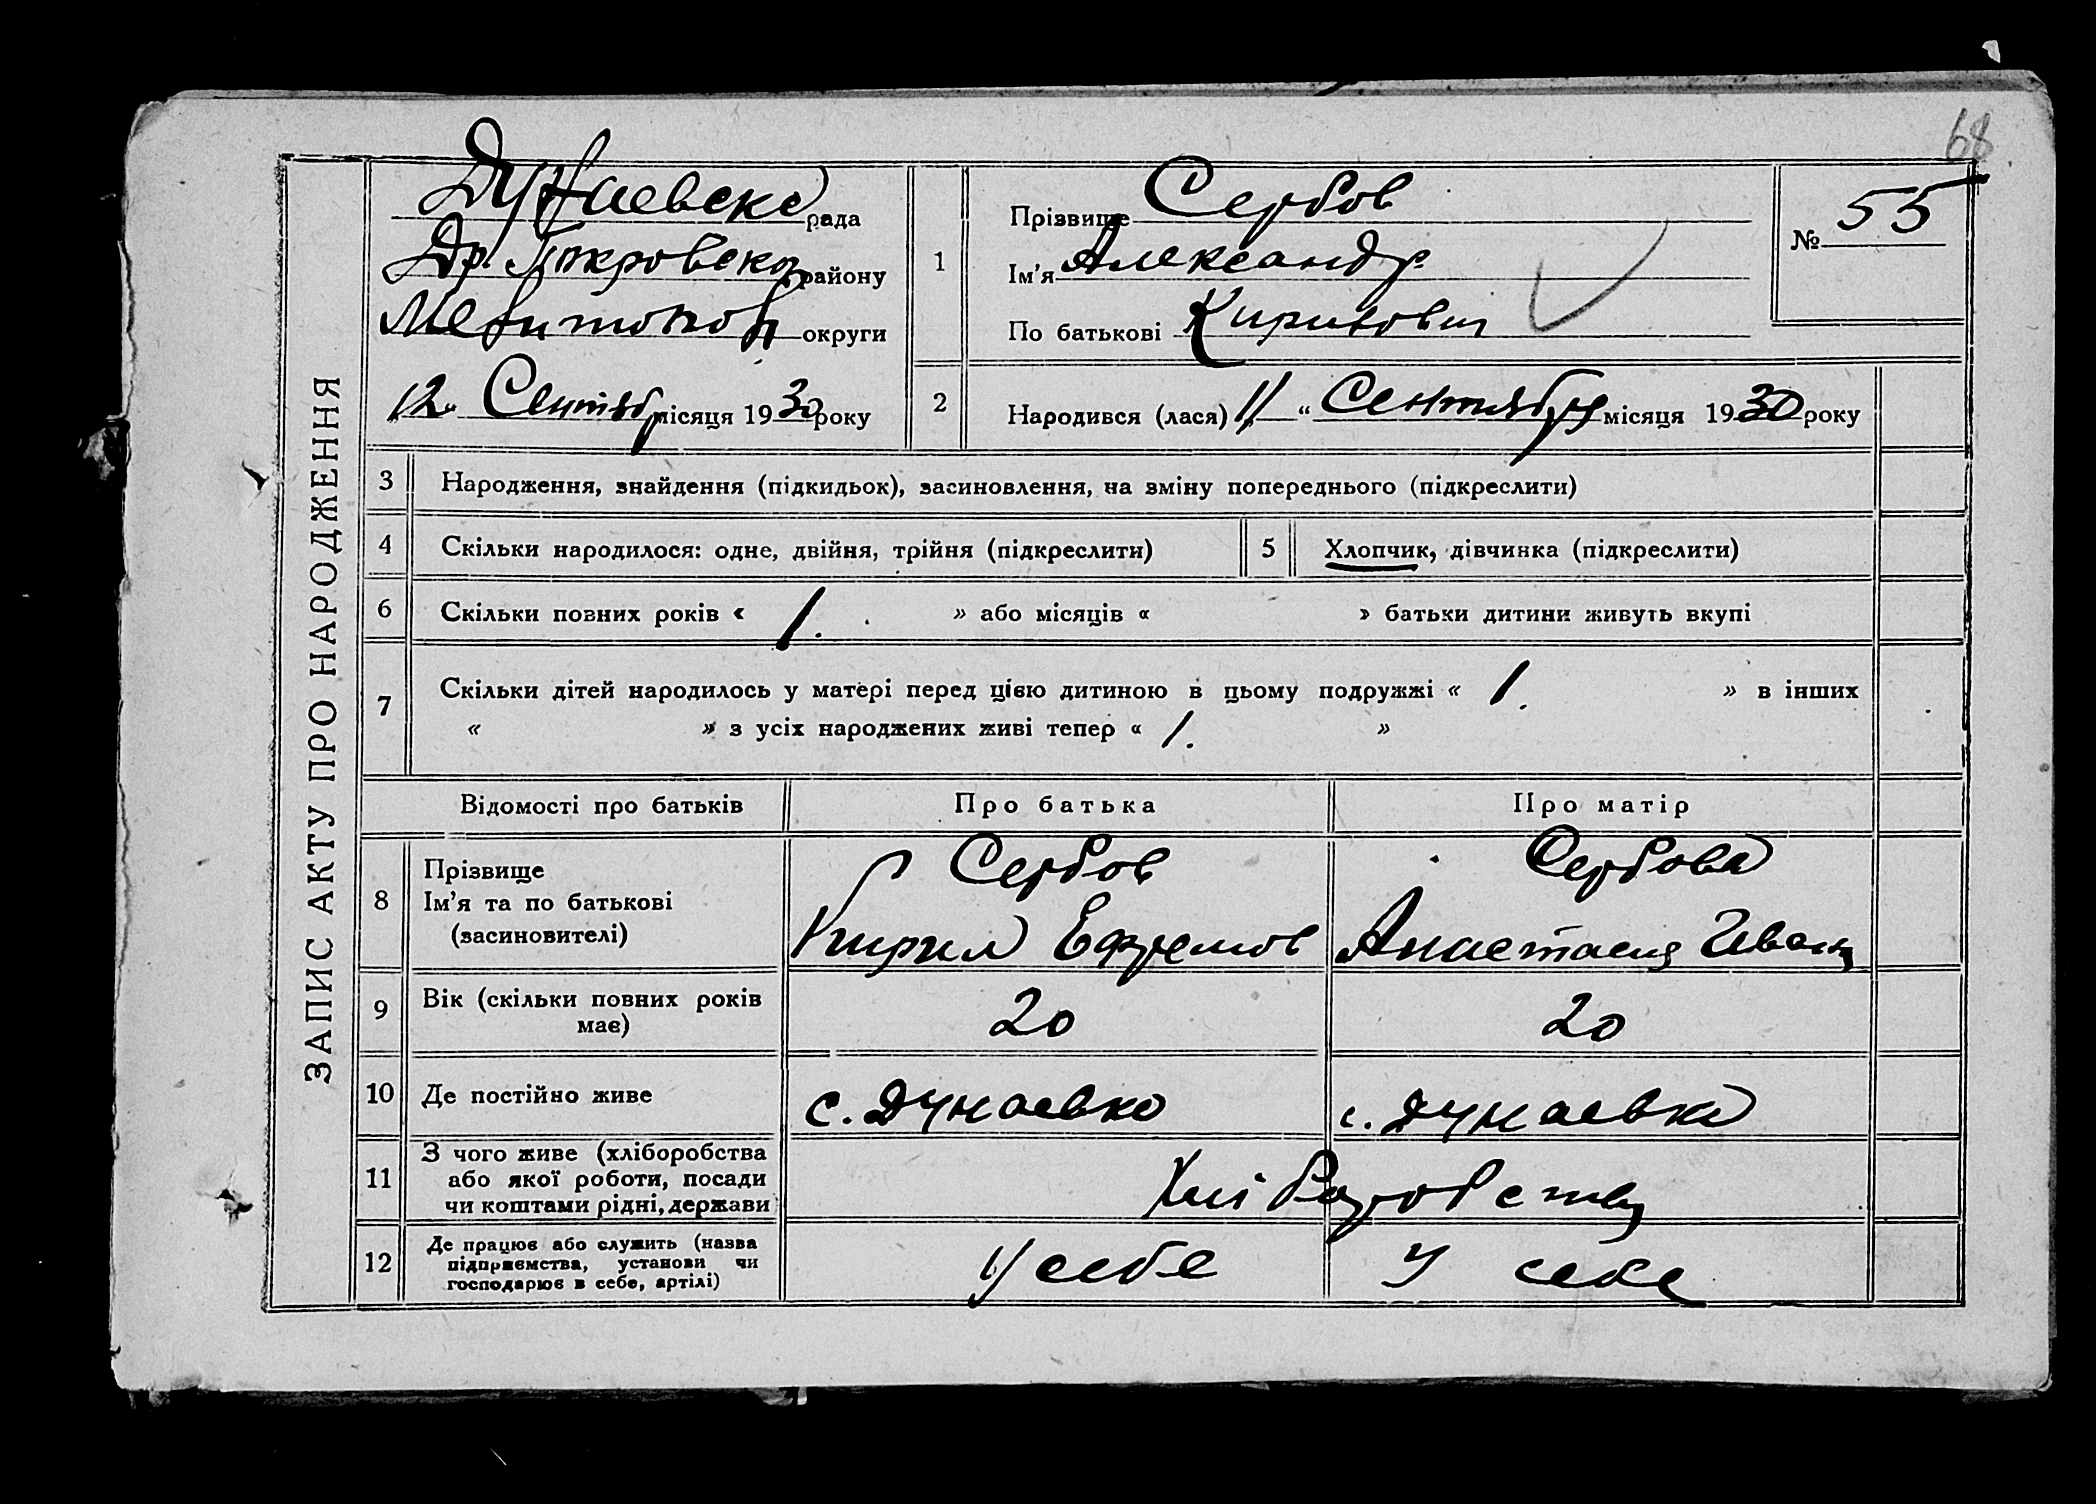 68
ЗАПИС АКТУ ПРО НАРОДЖЕННЯ
Дунаевска рада
Др. Покровскоц району
Мелитопол округи
12 Сентябр місяця 1930 року
1
Прізвище Сербов
Ім'я Александр
По батькові Кирилович
№ 55
2 Народився (лася) 11 " Сентября місяця 1930 року
3 Народження, знайдення (підкидьок), засиновлення, на зміну попереднього (підкреслити)
4 Скільки народилося: одне, двійня, трійня (підкреслити) 5 Хлопчик, дівчинка (підкреслити)
6 Скільки повних років « 1. » або місяців « » батьки дитини живуть вкупі
7 Скільки дітей народилось у матері перед цією дитиною в цьому подружжі « 1. » в інших
« » з усіх народжених живі тепер « 1. »
Відомості про батьків Про батька Про матір
8 Прізвище Ім'я та по батькові (засиновителі)
Сербов Сербова
Кирил Ефремов Анастасия Иван
9 Вік (скільки повних років має) 20 20
10 Де постійно живе с. Дунаевка с. Дунаевка
11 З чого живе (хліборобства або якої роботи, посади чи коштами рідні, держави Хліборобство
12 Де працює або служить (назва підприємства, установи чи господарює в себе, артілі) У себе У себе